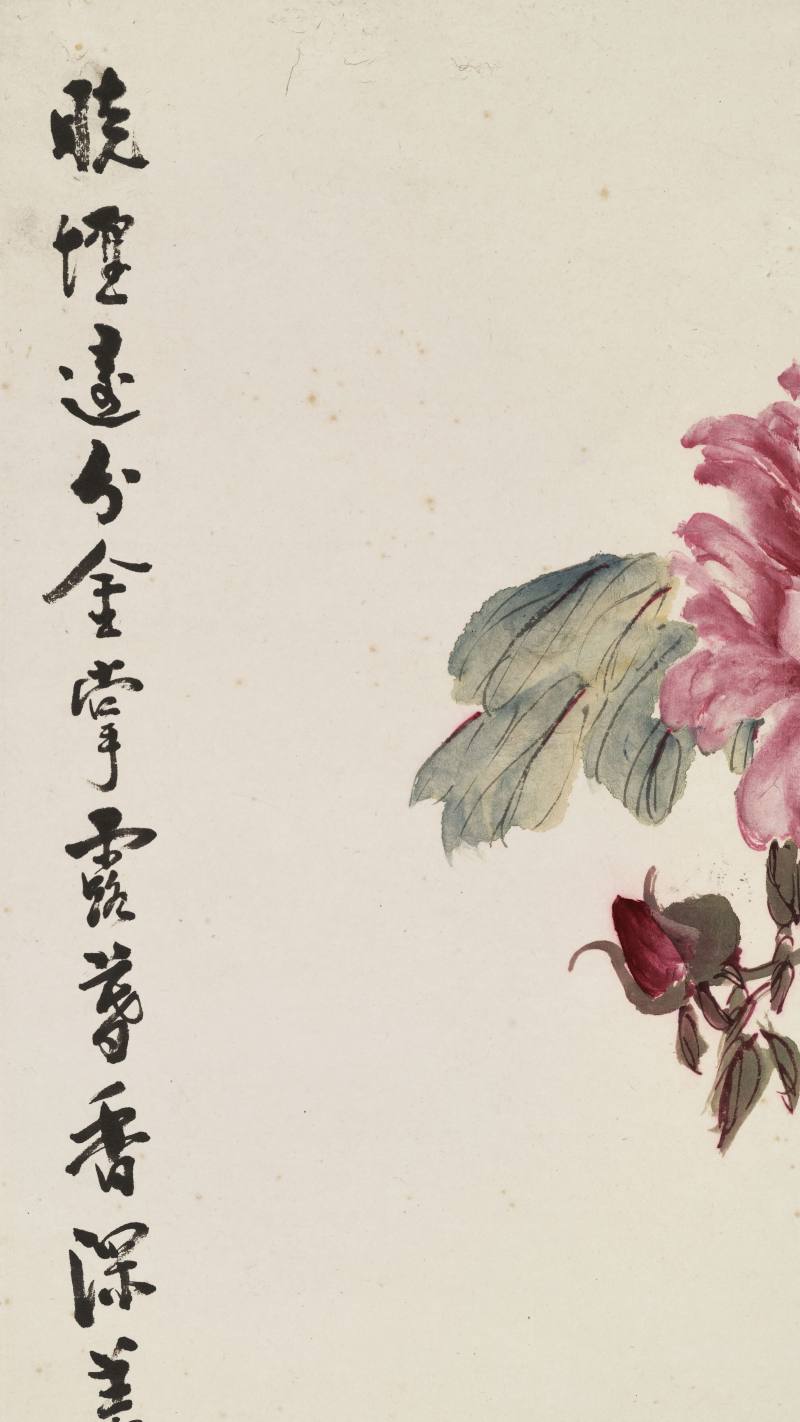 曉遠分金掌露暮香深